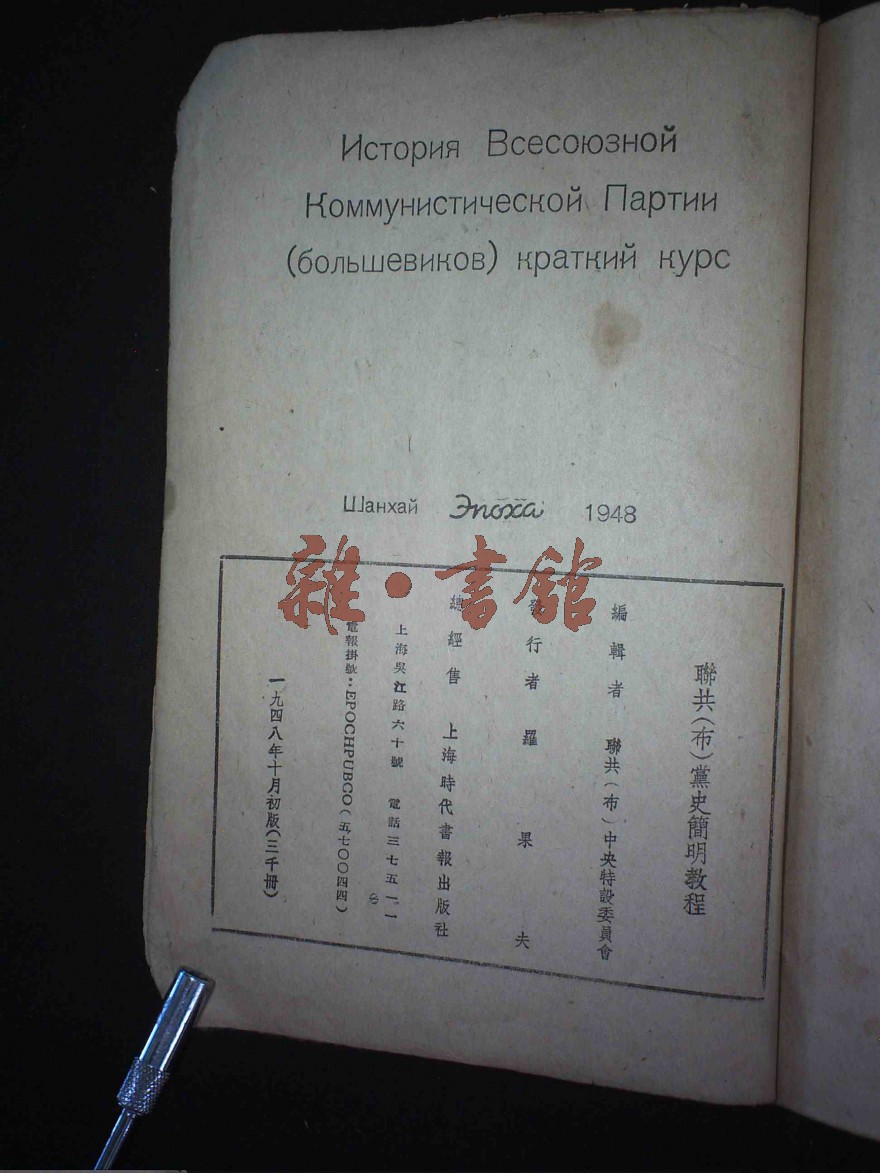 История Всесоюзной
Коммунистической Партии
(большевиков) краткий курс
Шанхай Эпоха 1948
雜·書館
聯共(布)黨史簡明教程
編輯者 聯共(布)中央特設委員會
發行者 羅果夫
總經售 上海時代書報出版社
上海吳江路六十號 電話三七五一一
電報掛號：EPOCHPUBCO(五七〇〇四四)
一九四八年十月初版(三千冊)